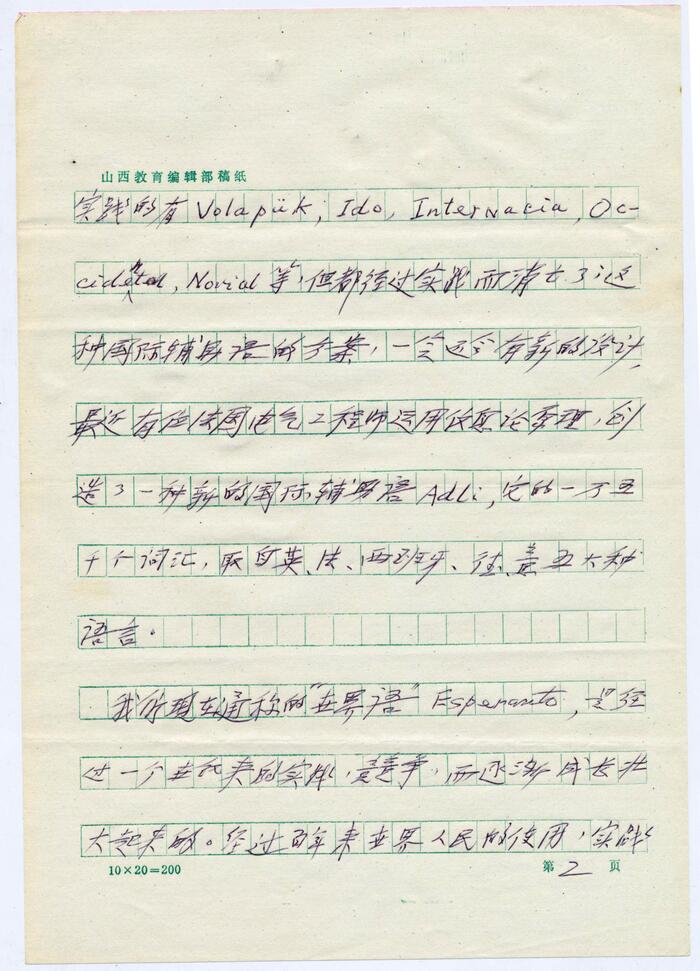 山西教育编辑部稿纸
实践的有 Volapük, Ido, Internacia, Oc-
cidental, Novial 等，但都经过实践而消亡了；这
种国际辅助语的方案，一定还会有新的设计，
最近有位法国电气工程师运用信息论原理，创
造了一种新的国际辅助语 Adli，它的一万五
千个词汇，取自英、法、西班牙、德、意五大种
语言。
我们现在通称的“世界语” Esperanto，是经
过一个世纪来的实践，竞争，而逐渐成长壮
大起来的。经过百年来世界人民的使用，实践
10×20=200
第 2 页